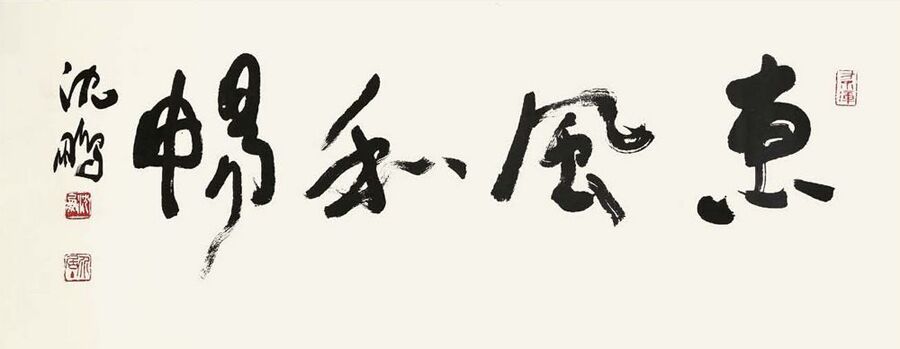 惠風和暢
沈鵬